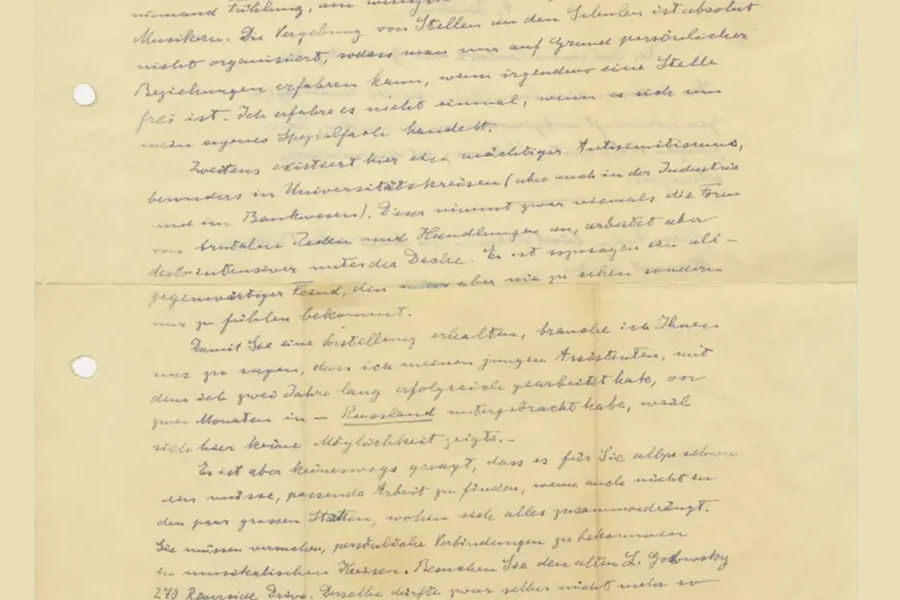 niemand Fühlung, am wenigsten
Musikern. Die Vergebung von Stellen an den Schulen ist absolut
nicht organisiert, sodass man nur auf Grund persönlicher
Beziehungen erfahren kann, wenn irgendwo eine Stelle
frei ist. Ich erfahre es nicht einmal, wenn es sich um
mein eigenes Spezialfach handelt.
Zweitens existiert hier ein mächtiger Antisemitismus,
besonders in Universitätskreisen (aber auch in der Industrie
und im Bankwesen). Dieser nimmt zwar niemals die Form
von brutalen Reden und Handlungen an, arbeitet aber
desto intensiver unter der Decke. Es ist sozusagen ein all-
gegenwärtiger Feind, den man aber nie zu sehen sondern
nur zu fühlen bekommt.
Damit Sie eine Vorstellung erhalten, brauche ich Ihnen
nur zu sagen, dass ich meinen jungen Assistenten, mit
dem ich zwei Jahre lang erfolgreich gearbeitet habe, vor
zwei Monaten in — Russland untergebracht habe, weil
sich hier keine Möglichkeit zeigte. -
Es ist aber keineswegs gesagt, dass es für Sie allzu schwer
sein müsse, passende Arbeit zu finden, wenn auch nicht in
den paar grossen Städten, wohin sich alles zusammendrängt.
Sie müssen versuchen, persönliche Verbindungen zu bekommen
in musikalischen Kreisen. Besuchen Sie den alten L. Godowsky
270 Riverside Drive. Derselbe dürfte zwar selber nicht mehr so